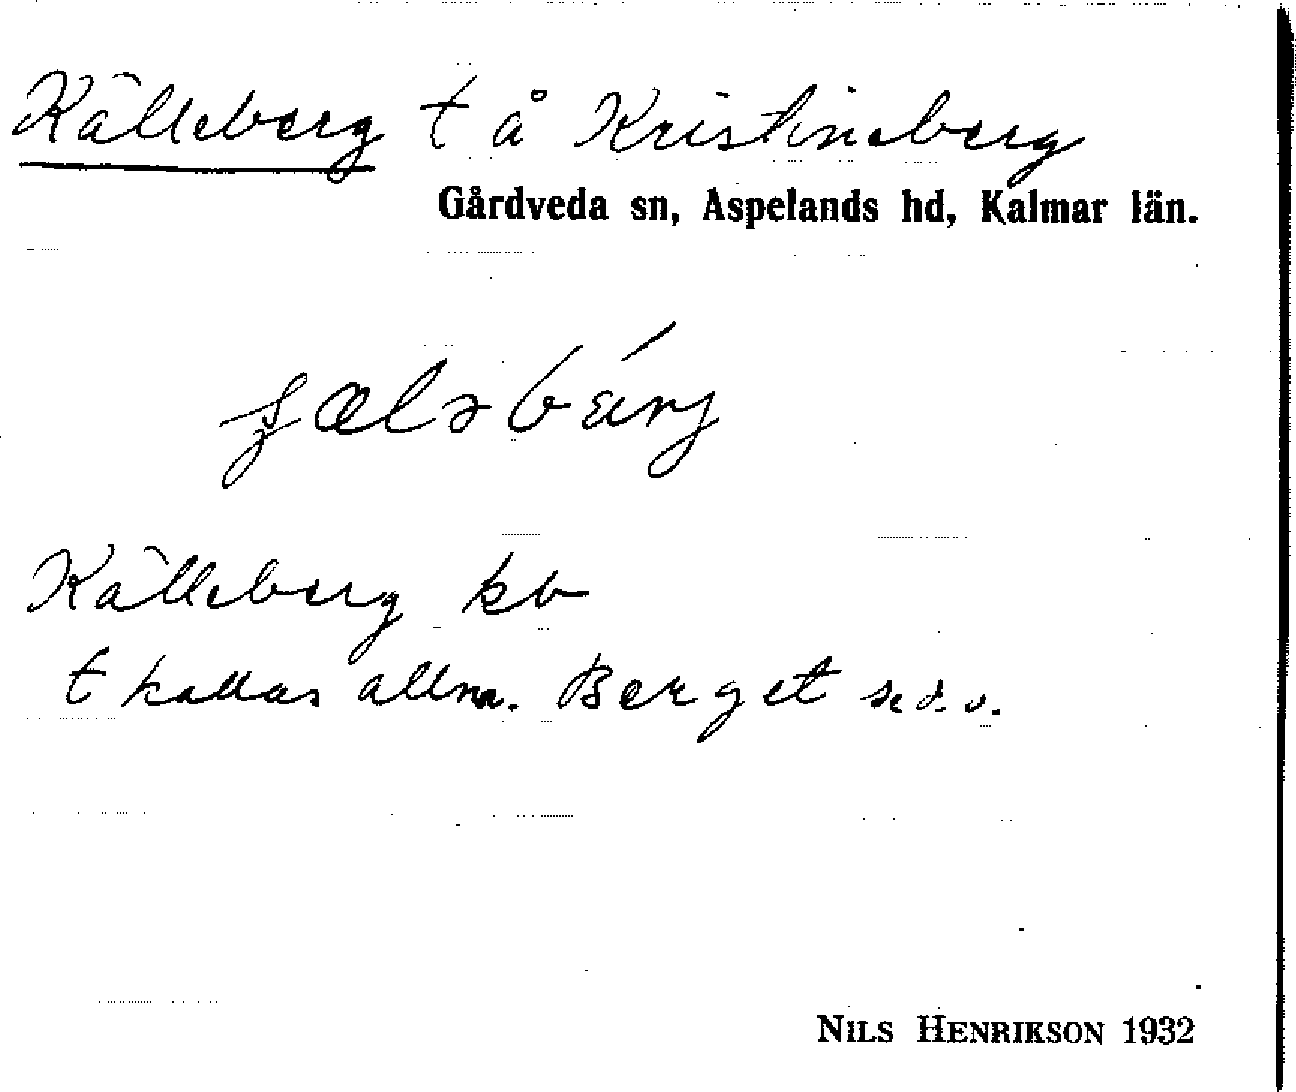 Källeberg t å Kristineberg
Gårdveda sn, Aspelands hd, Kalmar län.
Källeberg kb
t kallas allm. Berget
NILS HENRIKSON 1932